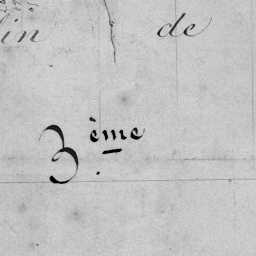 lin de
3ème